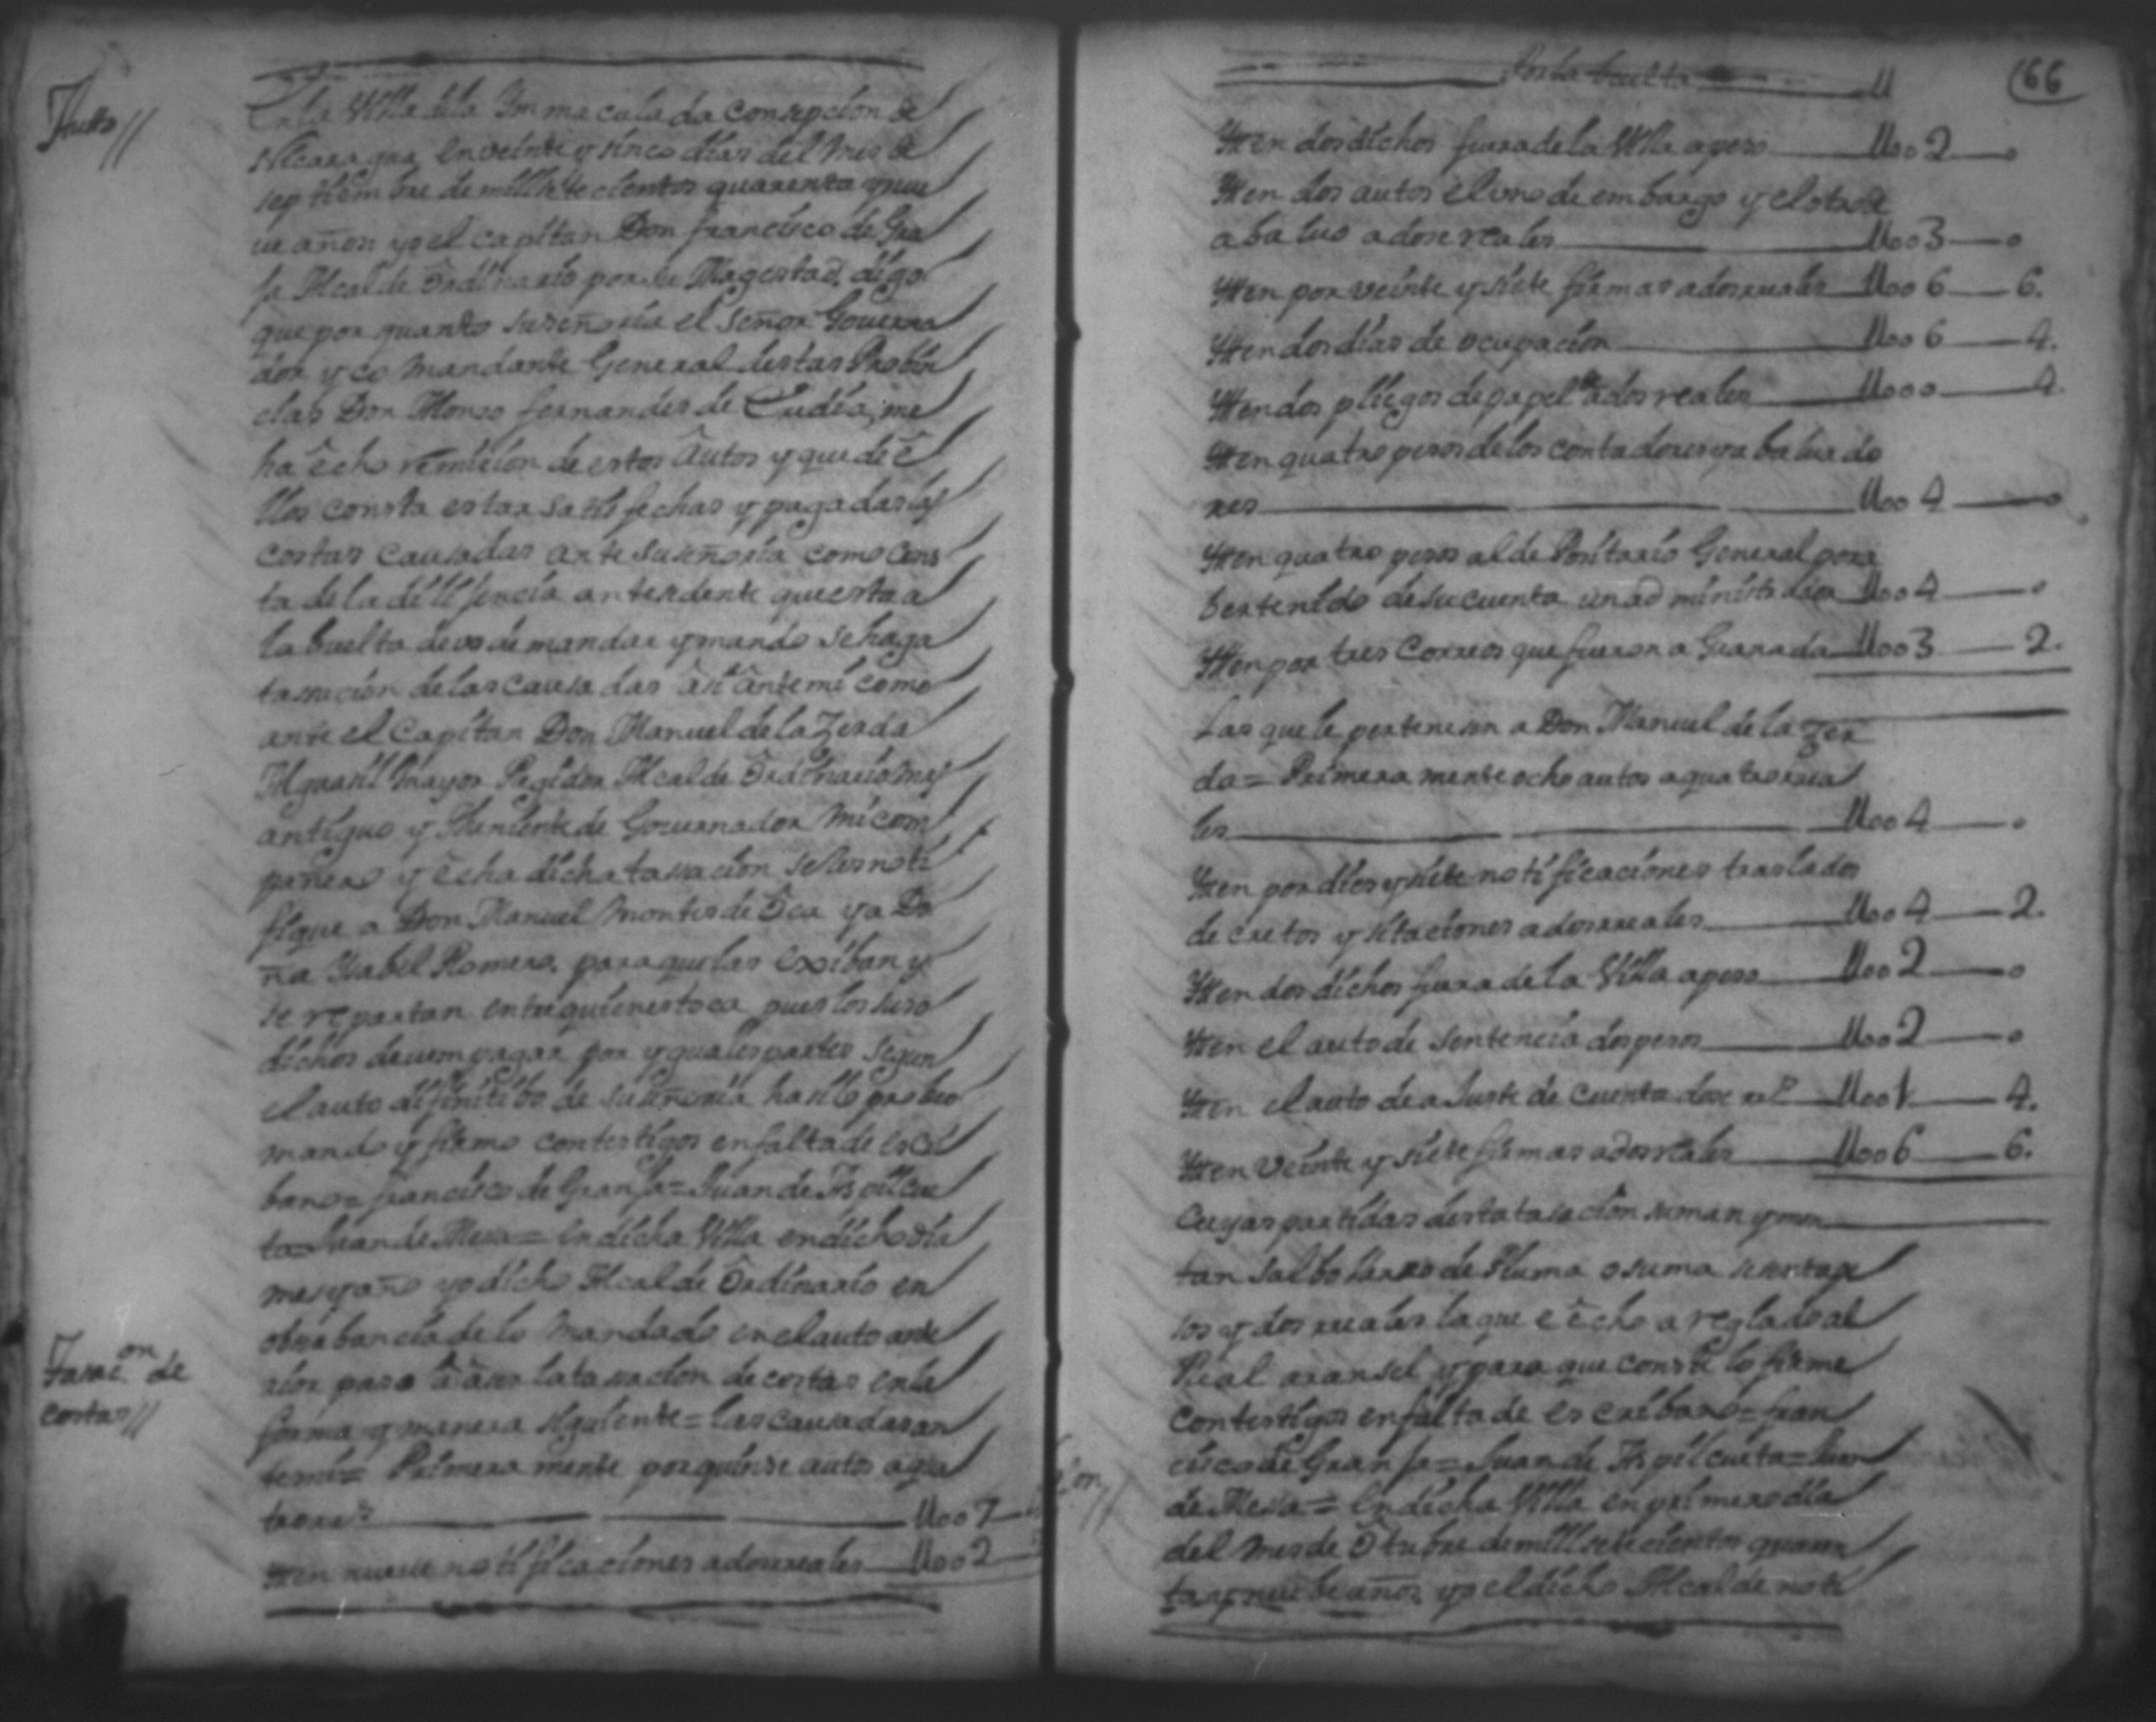 Autto //
En la Villa de la Immaculada Consepcion de
Nicaragua en veinte y sinco dias del Mes de
septiembre de mill setecientos quarenta y nue
ue años yo el capitan Don francisco de Gra
ja Alcalde Ordinario por su Magestad, digo
que por quanto suseñoria el señor Gouerna
dor y comandante General destas Probin
cias Don Alonso fernandes de Eredia, me
ha êcho remicion de estos Autos y que de ê
llos consta estar satisfechas y pagadas las
costas causadas ante suseñoria como cons
ta de la dilijencia antesedente que esta a
la buelta devo de mandar y mando se haga
tasacion de las causadas âsi ânte mi como
ante el Capitan Don Manuel de la Zerda
Alguasil Mayor Regidor Alcalde Ordinario mas
antiguo y Theniente de Gouernador mi com
pañero y êcha dicha tasacion se les noti
fique a Don Manuel Montes de Oca y a Do
ña Ysabel Romero, para que las exiban y
se repartan entre quienes toca pues los suso
dichos deuem pagar por yguales partes segun
el auto difinitibo de suseñoria hasilo probeo
mando y firmo con testigos en falta de escri
bano = francisco de Granja = Juan de Aspilcue
ta = Juan de Mesa = En dicha Villa en dicho dia
mes y año yo dicho Alcalde Ordinario en
obserbancia de lo mandado en el auto ante
rior paso â âser la tasacion de costas en la
forma y manera siguiente = las causadas an
te mi = Primeramente por quinse autos a qua
tro rr.s U007
Yten nueue notificaciones a dos reales U002
Tasac.on de
costas //
Por la buelta
66
Yten dos dichos fuera de la Villa a peso U002 0
Yten dos autos el uno de embargo y el otro de
abaluo a dose reales U003 0
Yten por veinte y siete firmas a dos reales U006 6.
Yten dos dias de ocupacion U006 4.
Yten dos pliegos de papel a dos reales U000 4.
Yten quatro pesos de los contadores y abaluado
res U004 0
Yten quatro pesos al depositario General por a
ber tenido de su cuenta administracion U004 0
Yten por tres Correos que fueron a Granada U003 2.
Las que le pertenesen a Don Manuel de la Zer
da = Primeramente ocho autos a quatro rea
les U004 0
Yten por dies y siete notificaciones traslados
decretos y sitaciones a dos reales U004 2.
Yten dos dichos fuera de la Villa a peso U002 0
Yten el auto de sentencia dos pesos U002 0
Yten el auto de ajuste de cuenta dose rr.s U001 4.
Yten veinte y siete firmas a dos reales U006 6.
Cuyas partidas desta tasacion suman y mon
tan salbo hierro de Pluma o suma sesenta pe
sos y dos reales la que e êcho areglado al
Real aransel y para que conste lo firme
con testigos en falta de escribano = fran
cisco de Granja = Juan de Aspilcueta = Juan
de Mesa = En dicha Villa en primero dia
del Mes de Otubre de mill setecientos quaren
ta y nuebe años, yo el dicho Alcalde noti